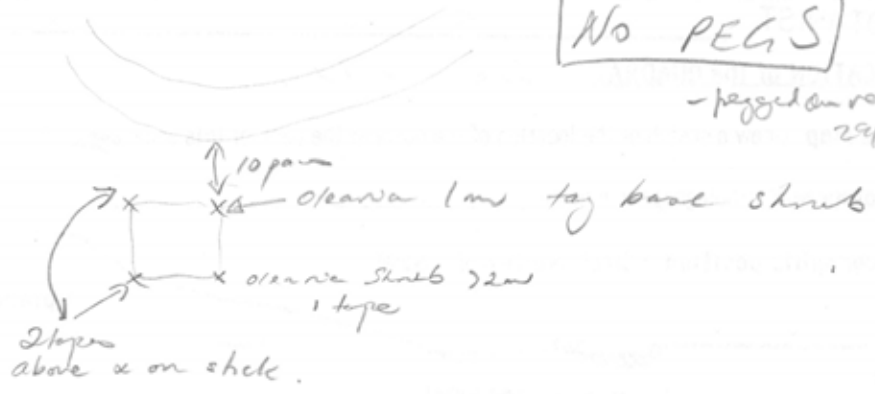 NO PEGS
- pegged on
10 paces
olearia 1m tag base shrub
olearia shrub >2m
1 tape
2 tapes
above & on stick.